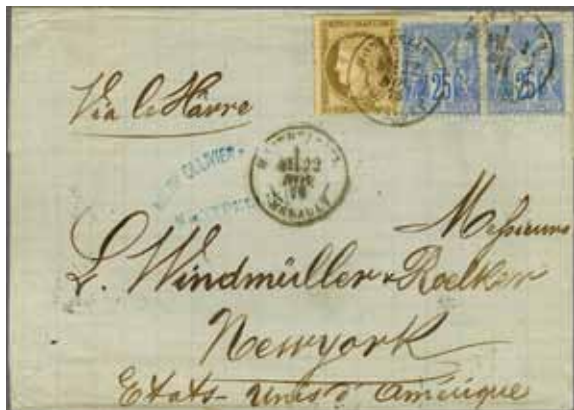 25 25
Via le Hâvre
OLLIVIER
HERAULT
Messieurs
L. Windmüller & Roelker
Newyork
Etats-Unis d'Amérique